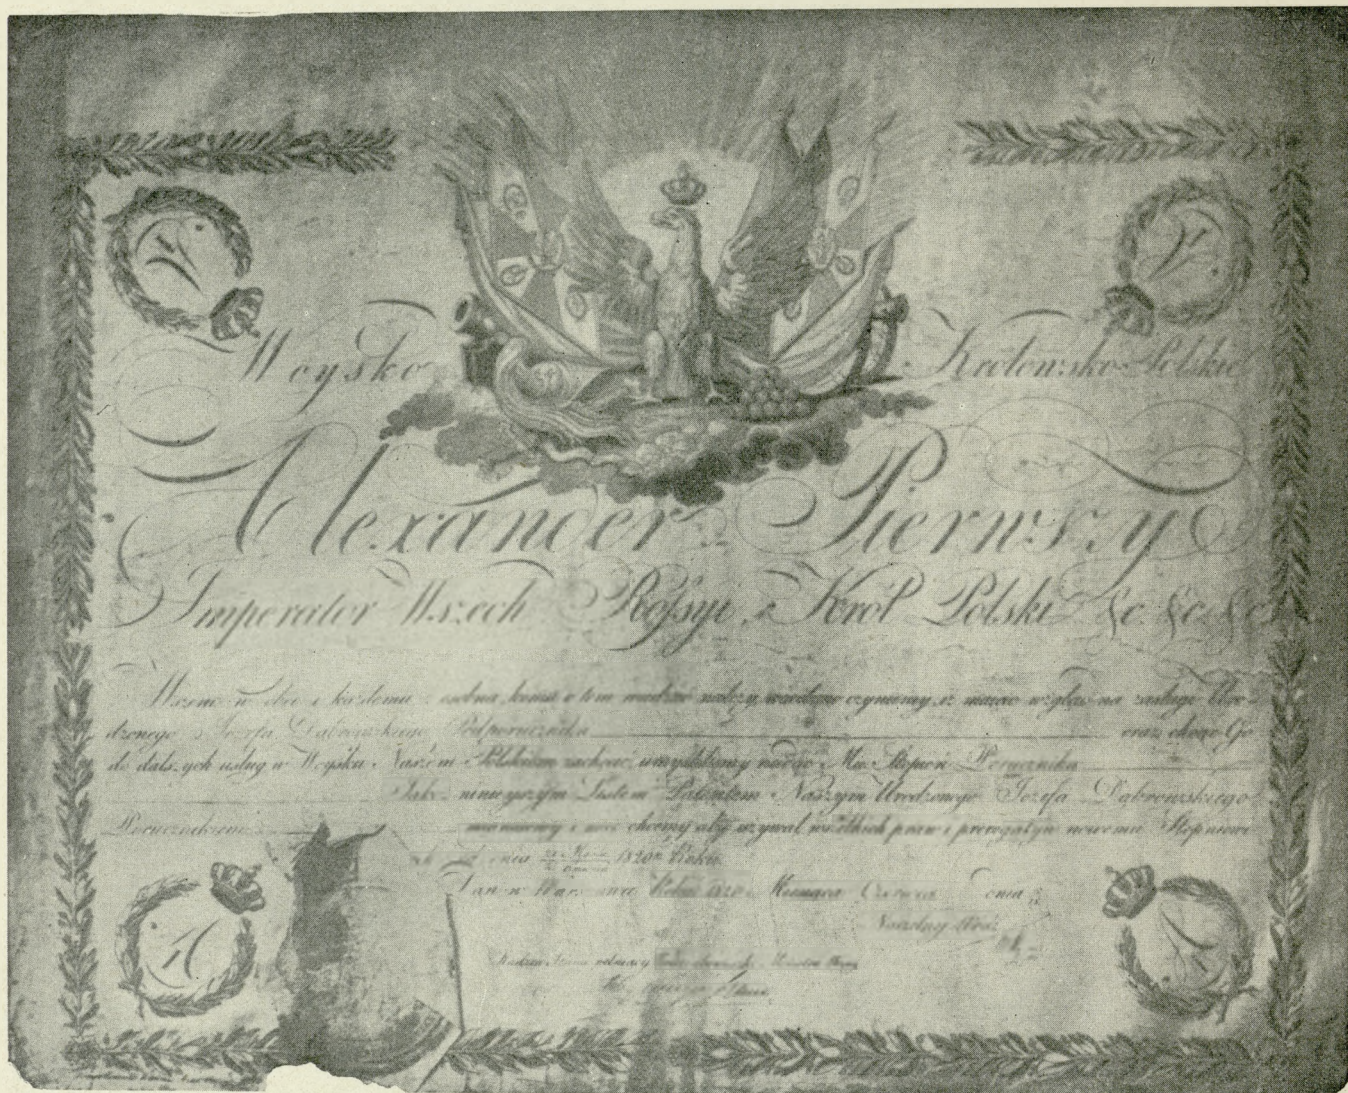 Woysko Krolewsko-Polskie
Alexander Pierwszy
Imperator Wszech Rossyi, Król Polski &c. &c. &c.
Wszem w obec i każdemu z osobna, komu o tem wiedzieć należy, wiadomo czynimy, iż maiąc wzgląd na zasługi Uro-
dzonego Józefa Dąbrowskiego Podporucznika oraz chcąc Go
do dalszych usług w Woysku Naszem Polskiem zachęcić, umyśliliśmy nadać Mu Stopień Porucznika
Jakoż ninieyszym Listem Patentem Naszym Urodzonego Józefa Dąbrowskiego
Porucznikiem mianuiemy i mieć chcemy aby używał wszelkich praw i prerogatyw nowemu Stopniowi
dnia 1820 Roku.
Dan w Warszawie Roku 1820 Miesiąca Czerwca dnia
Naczelny Wódz
Radzca Stanu